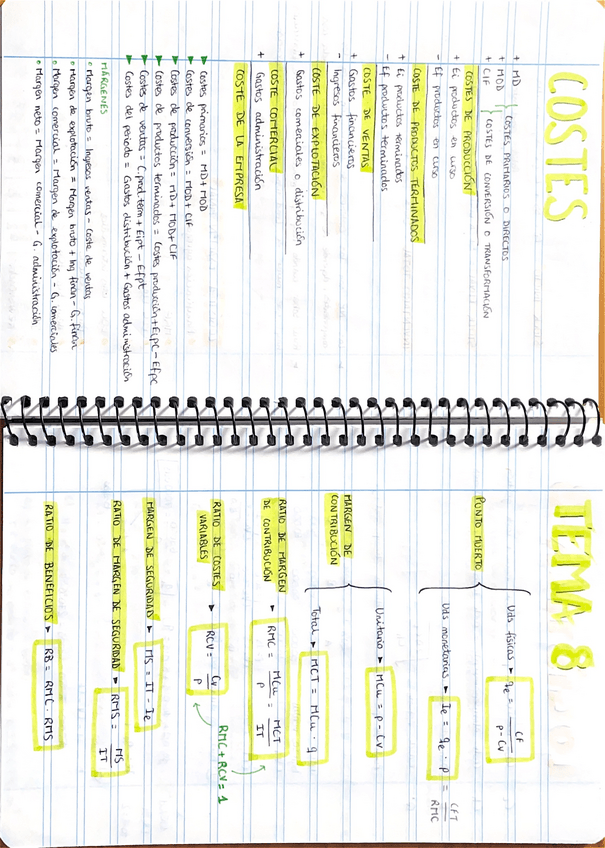 COSTES
+ MD
+ MOD
COSTES PRIMARIOS O DIRECTOS
+ CIF
COSTES DE CONVERSIÓN O TRANSFORMACIÓN
COSTES DE PRODUCCIÓN
+ Ei productos en curso
- Ef productos en curso
COSTE DE PRODUCTOS TERMINADOS
+ Ei productos terminados
- Ef productos terminados
COSTE DE VENTAS
+ Gastos financieros
- Ingresos financieros
COSTE DE EXPLOTACIÓN
+ Gastos comerciales o distribución
COSTE COMERCIAL
+ Gastos administración
COSTE DE LA EMPRESA
► Costes primarios = MD + MOD
► Costes de conversión = MOD + CIF
► Costes de producción = MD + MOD + CIF
► Costes de productos terminados = Costes producción + Eipc - Efpc
► Costes de ventas = C. prod. term + Eipt - Efpt
► Costes del periodo = Gastos distribución + Gastos administración
MÁRGENES
• Margen bruto = Ingresos ventas - Coste de ventas
• Margen de explotación = Margen bruto + Ing. finan - G. finan
• Margen comercial = Margen de explotación - G. comerciales
• Margen neto = Margen comercial - G. administración
TEMA 8
PUNTO MUERTO
Uds físicas ► qe = CF / p - Cv
Uds monetarias ► Ie = qe · p = CFT / RMC
MARGEN DE CONTRIBUCIÓN
Unitario ► MCu = p - Cv
Total ► MCT = MCu · q
RATIO DE MARGEN
DE CONTRIBUCIÓN ► RMC = MCu / p = MCT / IT
RATIO DE COSTES
VARIABLES ► RCV = Cv / p
RMC + RCV = 1
MARGEN DE SEGURIDAD ► MS = IT - Ie
RATIO DE MARGEN DE SEGURIDAD ► RMS = MS / IT
RATIO DE BENEFICIOS ► RB = RMC · RMS